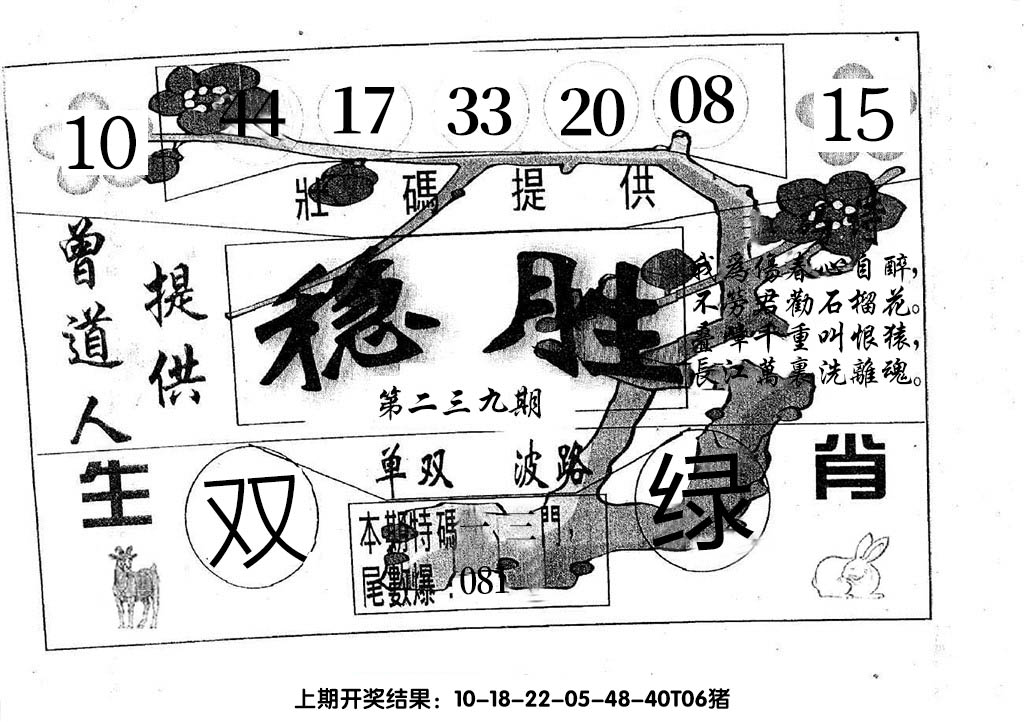 10 44 17 33 20 08 15
壯碼提供
曾道人
提供
稳胜
第二三九期
我為傷春心自醉，
不勞君勸石榴花。
千重叫恨猿，
長江萬裏洗離魂。
单双 波路
生肖
双
绿
本期特碼一、三門，
尾數爆：081
上期开奖结果：10-18-22-05-48-40T06猪